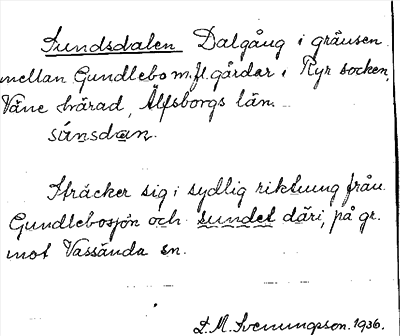 Sundsdalen Dalgång i gränsen
mellan Gundlebo m.fl. gårdar i Ryr socken,
Väne härad, Älfsborgs län.
súnsdan.
Sträcker sig i sydlig riktning från
Gundlebosjön och sundet däri, på gr.
mot Vassända sn.
D. M. Svenungsson. 1936.